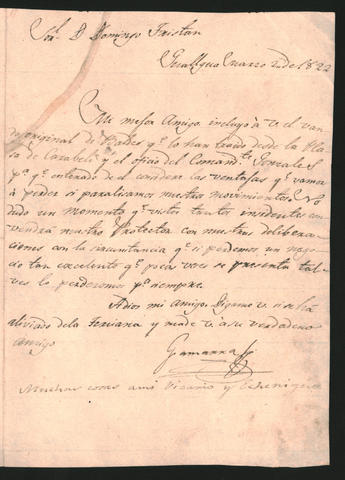 Sor. D. Domingo Tristan
Marzo 2 de 1822
Mi mejor Amigo incluyo á V. el van
do original de Valdes qe. lo han traido desde la Pla
sa de Carabeli, y el oficio del Comandte. Gonzales
pa. qe. enterado de el considere las ventajas qe. vamos
á perder si paralisamos nuestros movimientos. No
dudo un momento qe. vistos tantos insidentes con
vendrá nuestro Protector con nuestras delibera
ciones con la circunstancia qe. si perdemos un nego
cio tan excelente qe. pocas veces se presenta tal
ves lo perderemos pa. siempre.
Adios mi Amigo. Digame V. si se ha
aliviado de la terciana y mande V. á su verdadero
Amigo
Gamarra
Muchas cosas a mi Vicario y Echenique